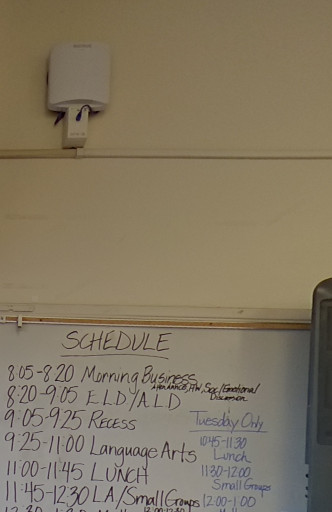 SCHEDULE
8:05-8:20 Morning Business
Attendance, HW, Soc/Emotional
Discussion
8:20-9:05 ELD/ALD
9:05-9:25 RECESS
9:25-11:00 Language Arts
11:00-11:45 LUNCH
11:45-12:30 LA/Small Groups
Tuesday Only
10:45-11:30
Lunch
11:30-12:00
Small Groups
12:00-1:00